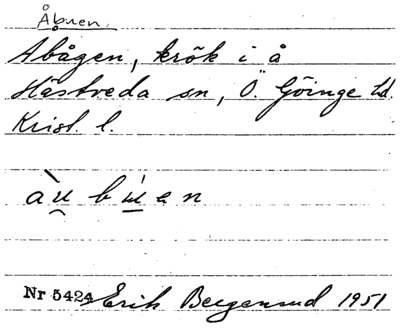 Åbuen.
Abågen, krök i å
Hästveda sn, Ö. Göinge hd.
Krist. l.
àu̯ bẃ̲ e n
Nr 5424 Erik Bergensud 1951